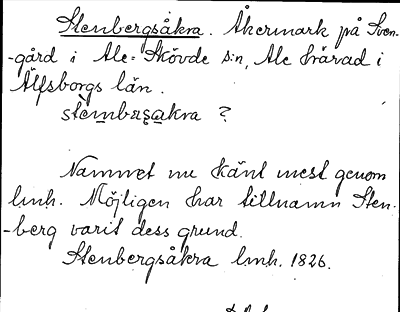 Stenbergsåkra. Åkermark på Sven-
-gård i Ale-Skövde s:n, Ale härad i
Älfsborgs län.
stembæsakra ?
Namnet nu känt mest genom
lmh. Möjligen har tillnamn Sten-
-berg varit dess grund.
Stenbergsåkra lmh. 1826.